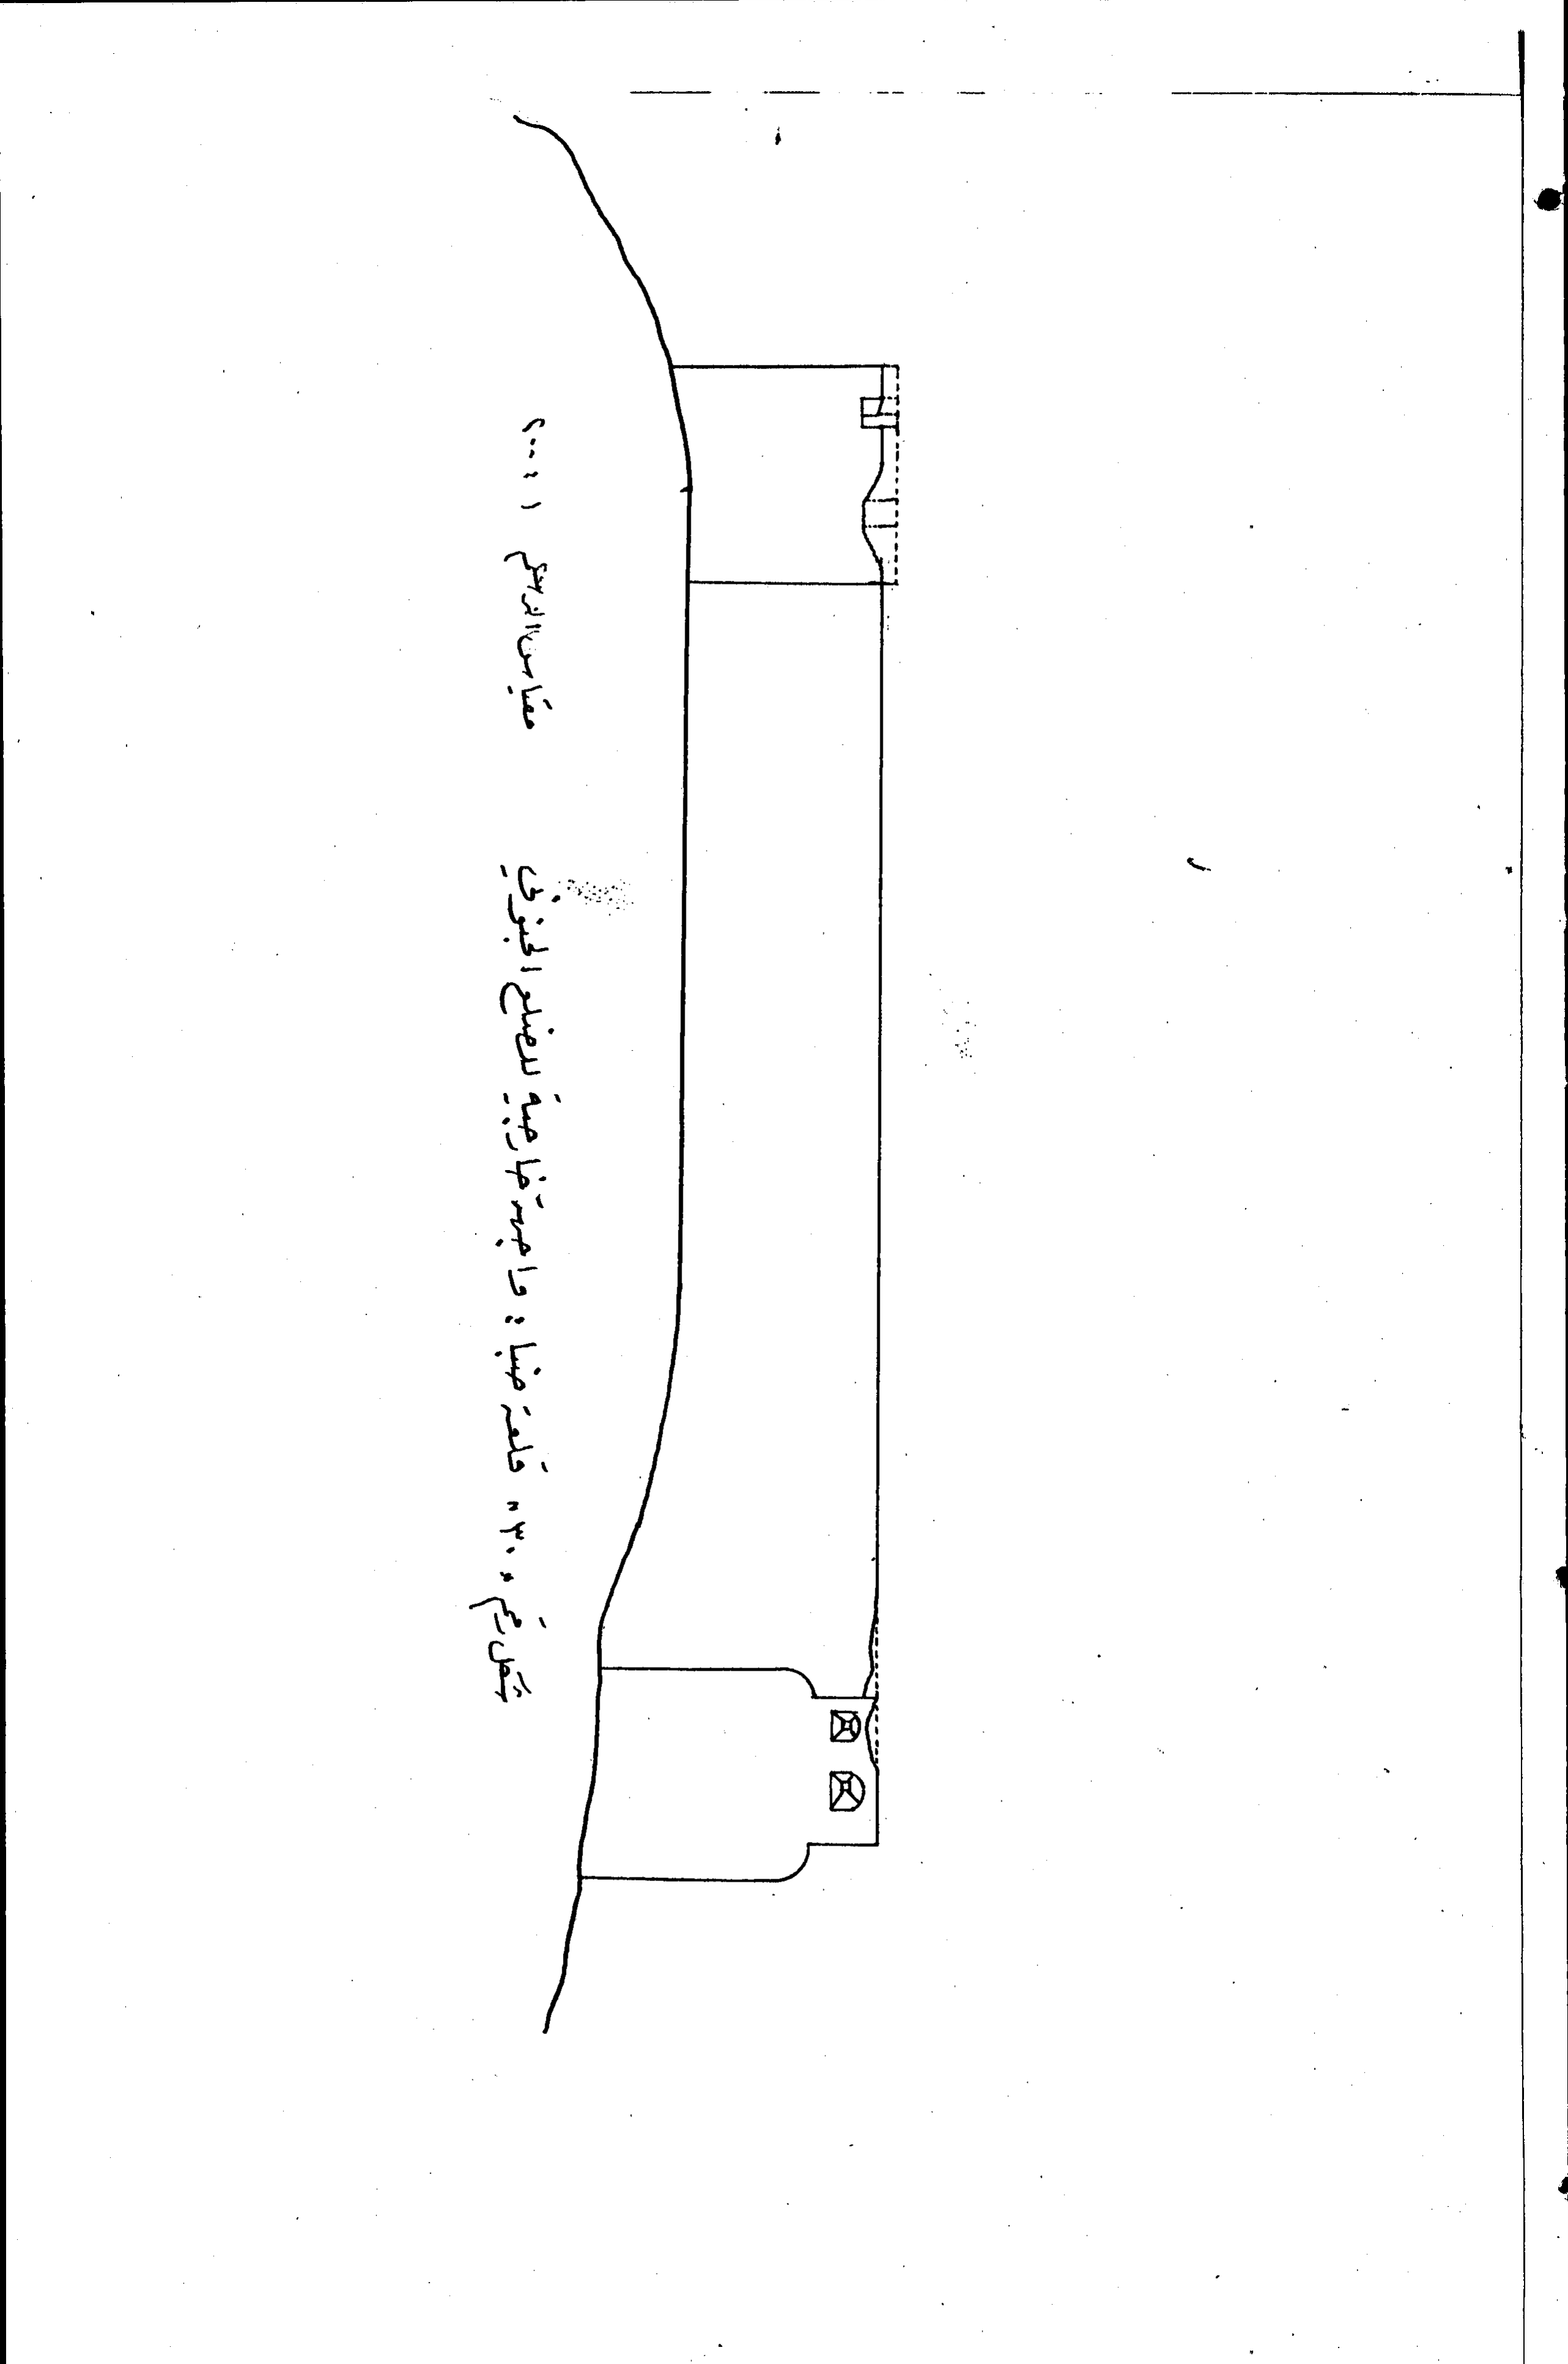 شكل رقم "٣٠" قلعة ضبا : واجهة خارجية للضلع الجنوبي مقياس الرسم ١ : ٢٠٠